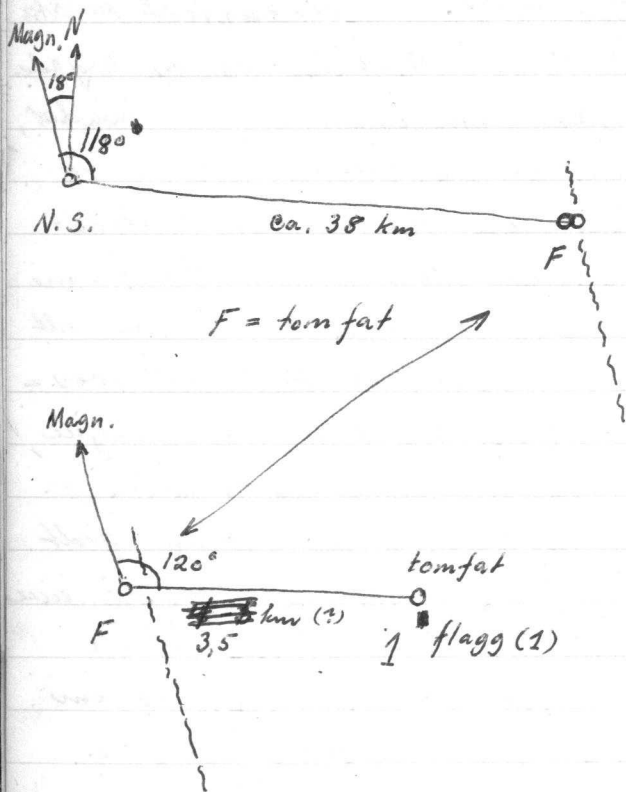 Magn. N
18°
118°
N.S.
ca. 38 km
F
F = tom fat
Magn.
120°
tomfat
km (?)
F
3,5
1 flagg (1)